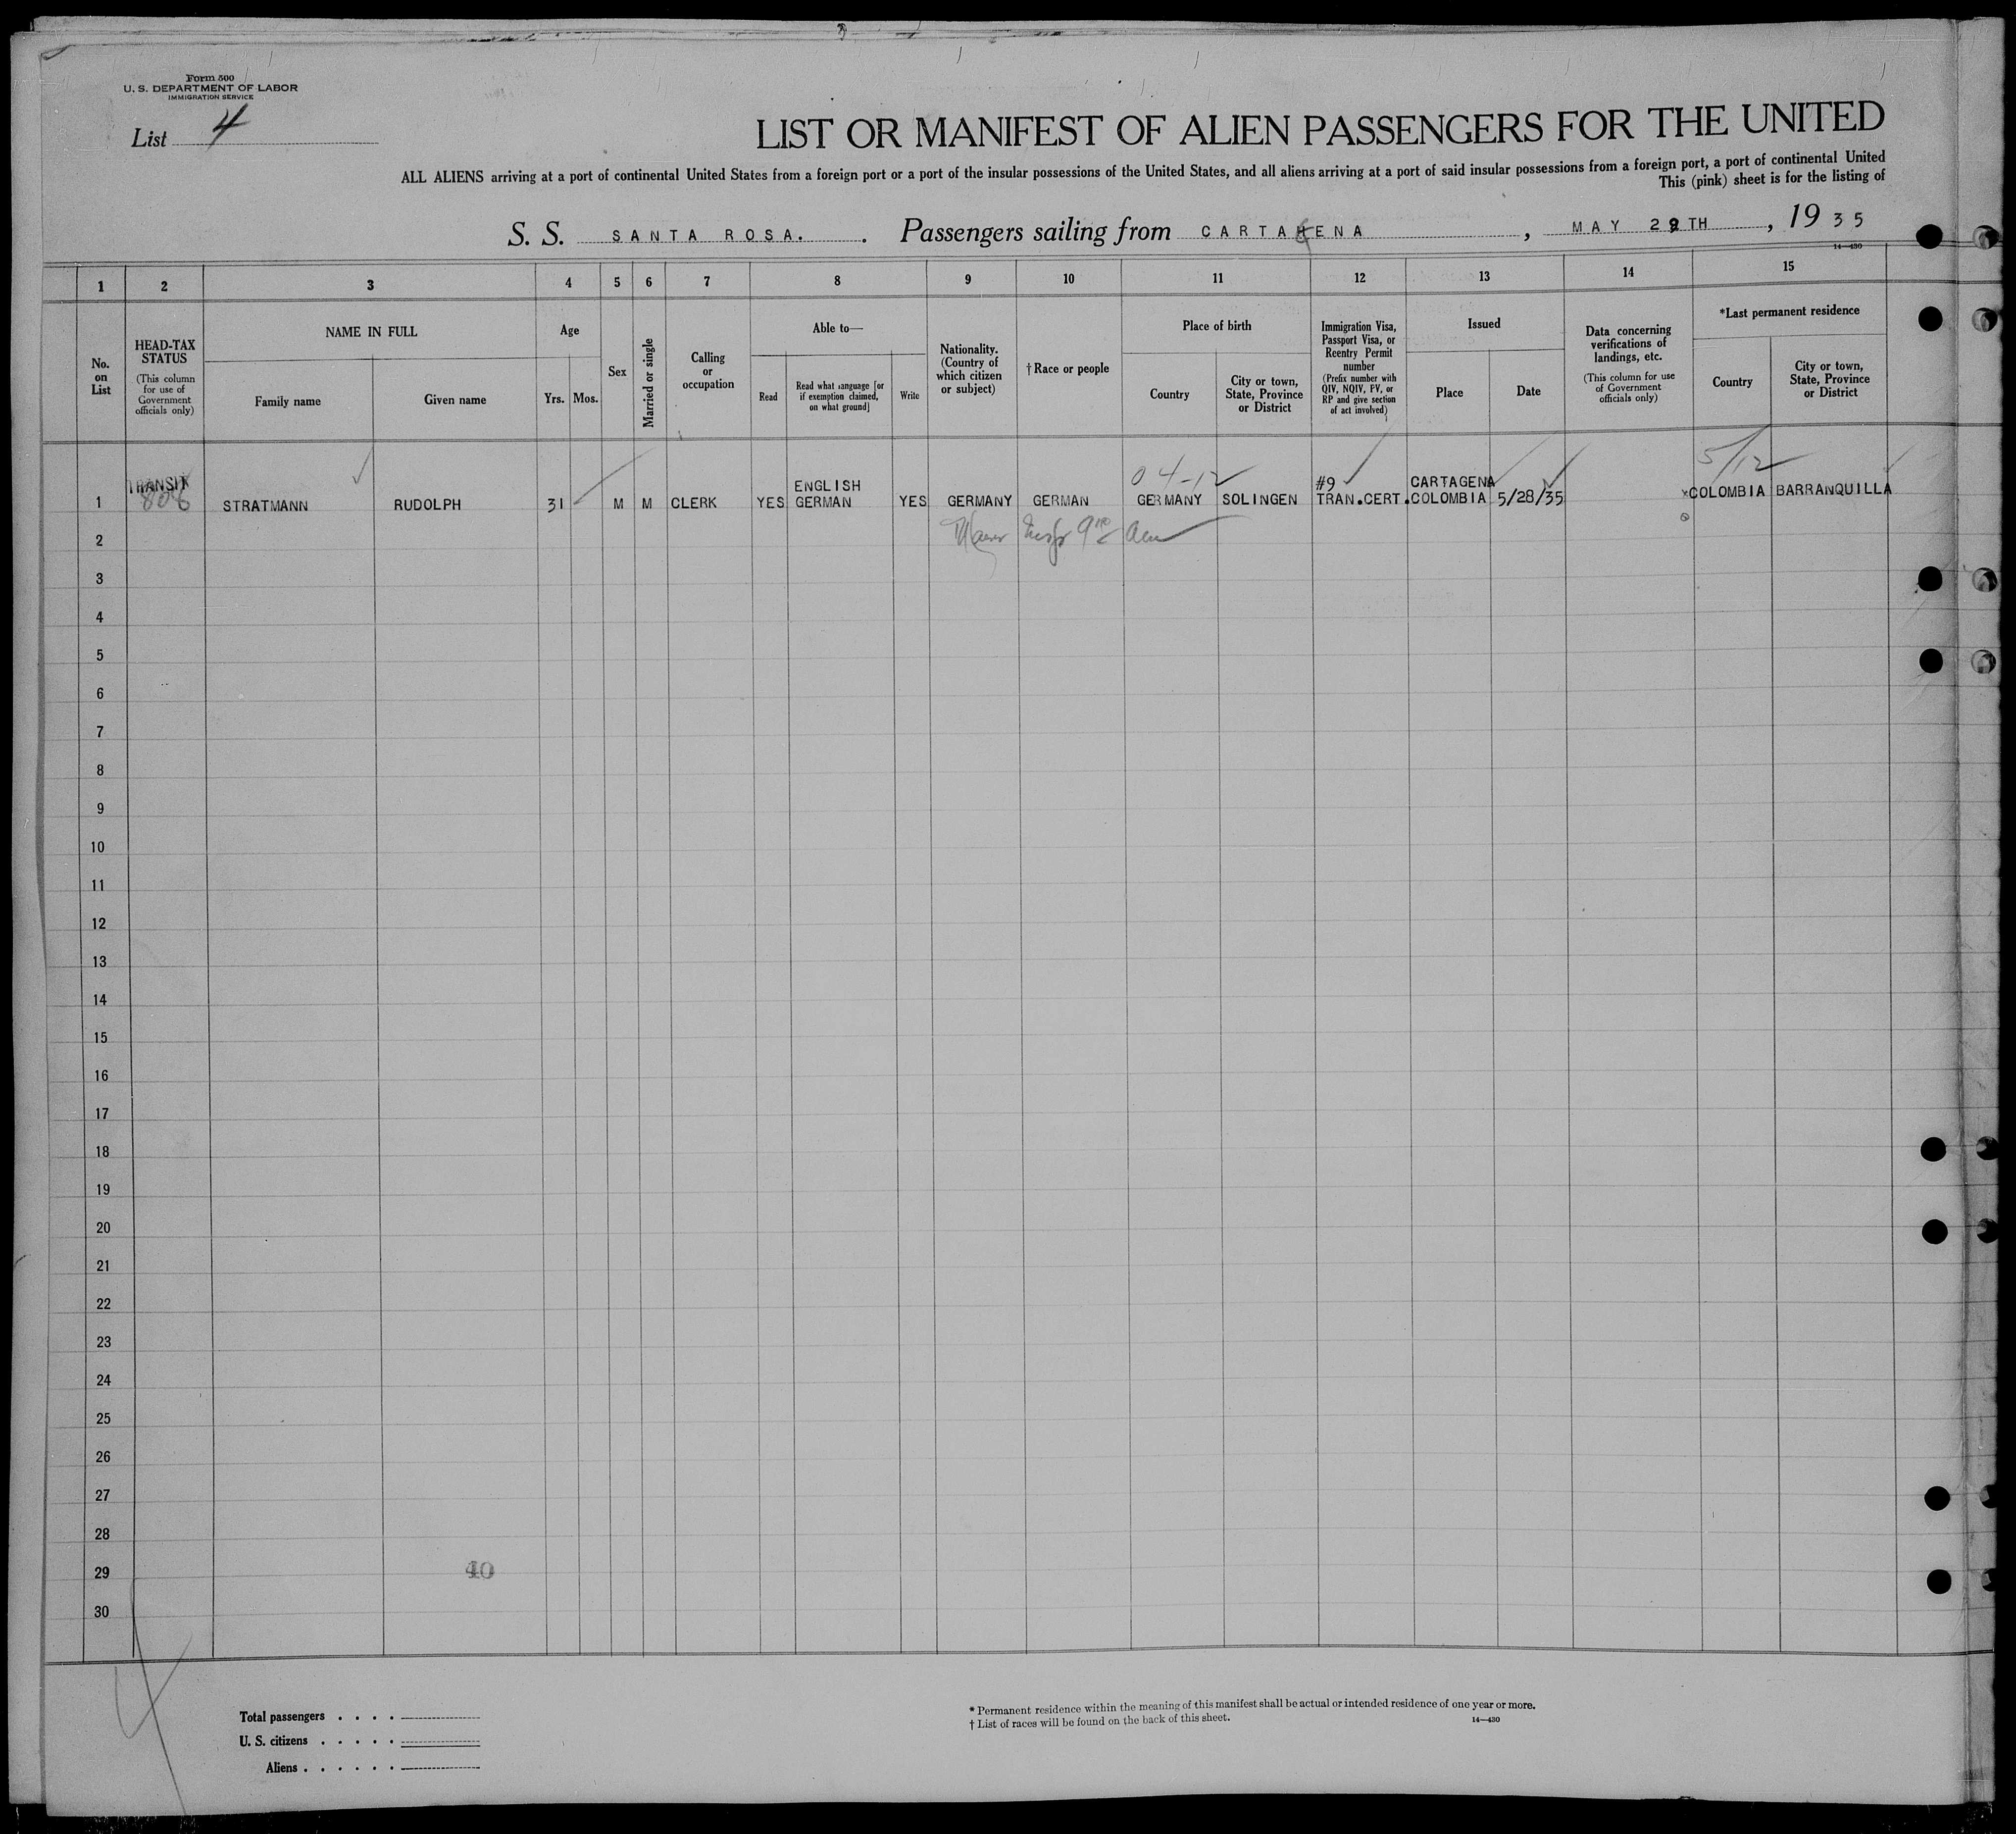 Form 500
U. S. DEPARTMENT OF LABOR
IMMIGRATION SERVICE
List 4
LIST OR MANIFEST OF ALIEN PASSENGERS FOR THE UNITED
ALL ALIENS arriving at a port of continental United States from a foreign port or a port of the insular possessions of the United States, and all aliens arriving at a port of said insular possessions from a foreign port, a port of continental United
This (pink) sheet is for the listing of
S. S. SANTA ROSA. Passengers sailing from CARTAGENA, MAY 29TH, 1935
14—430
1 2 3 4 5 6 7 8 9 10 11 12 13 14 15
No. on List
HEAD-TAX STATUS
(This column for use of Government officials only)
NAME IN FULL
Family name
Given name
Age
Yrs. Mos.
Sex
Married or single
Calling or occupation
Able to—
Read
Read what language [or if exemption claimed, on what ground]
Write
Nationality. (Country of which citizen or subject)
†Race or people
Place of birth
Country
City or town, State, Province or District
Immigration Visa, Passport Visa, or Reentry Permit number
(Prefix number with QIV, NQIV, PV, or RP and give section of act involved)
Issued
Place
Date
Data concerning verifications of landings, etc.
(This column for use of Government officials only)
*Last permanent residence
Country
City or town, State, Province or District
04-12
5/12
TRANSIT ENGLISH #9 CARTAGENA
1 STRATMANN RUDOLPH 31 M M CLERK YES GERMAN YES GERMANY GERMAN GERMANY SOLINGEN TRAN.CERT. COLOMBIA 5/28/35 COLOMBIA BARRANQUILLA
2
3
4
5
6
7
8
9
10
11
12
13
14
15
16
17
18
19
20
21
22
23
24
25
26
27
28
29
40
30
Total passengers . . . .
U. S. citizens . . . . .
Aliens . . . . . .
* Permanent residence within the meaning of this manifest shall be actual or intended residence of one year or more.
† List of races will be found on the back of this sheet.
14—430